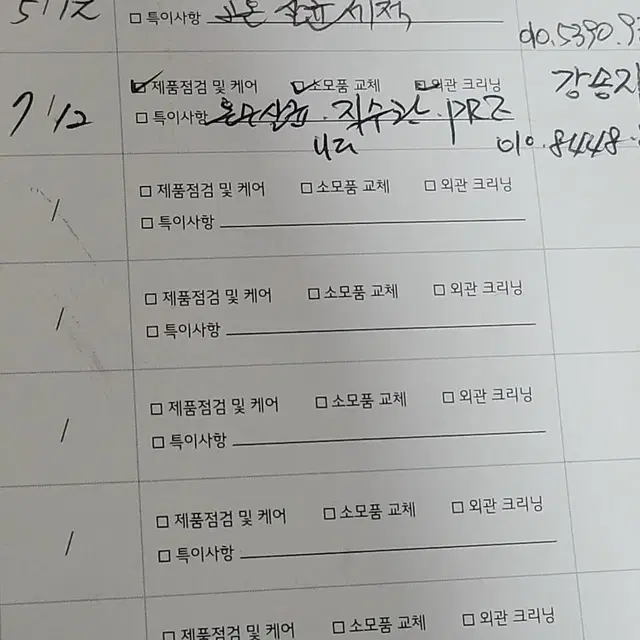 5/12 □ 특이사항 고온 살균 세척
010.5390.9
7/12 ☑ 제품점검 및 케어 ☑ 소모품 교체 ☑ 외관 크리닝
□ 특이사항 온수살균. 직수관.
010.8448.
/ □ 제품점검 및 케어 □ 소모품 교체 □ 외관 크리닝
□ 특이사항
/ □ 제품점검 및 케어 □ 소모품 교체 □ 외관 크리닝
□ 특이사항
/ □ 제품점검 및 케어 □ 소모품 교체 □ 외관 크리닝
□ 특이사항
/ □ 제품점검 및 케어 □ 소모품 교체 □ 외관 크리닝
□ 특이사항
□ 제품점검 및 케어 □ 소모품 교체 □ 외관 크리닝